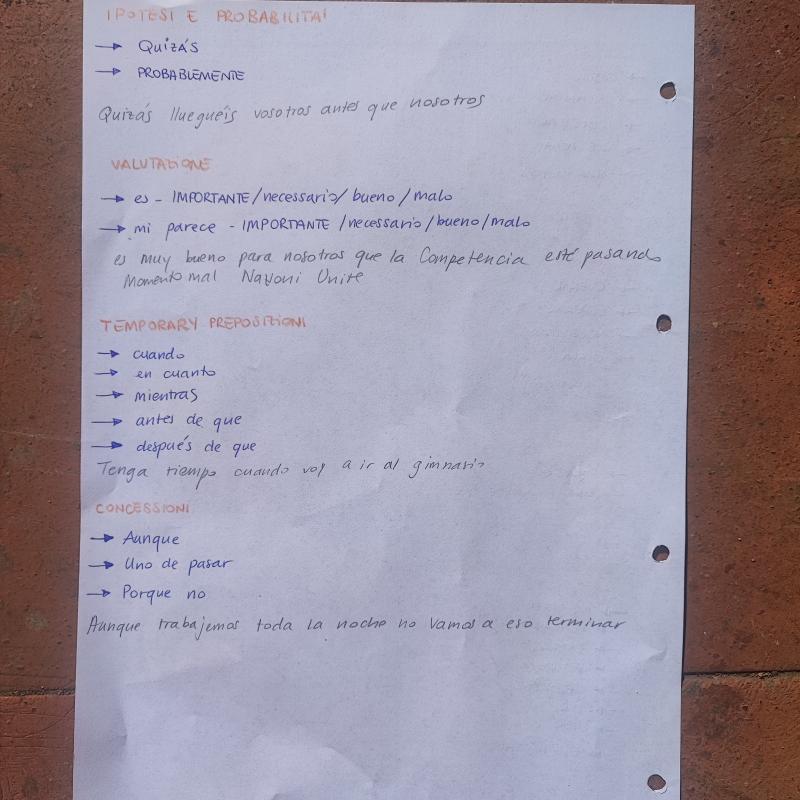 IPOTESI E PROBABILITA'
→ Quizás
→ PROBABLEMENTE
Quizás llueguéis vosotros antes que nosotros
VALUTAZIONE
→ es - IMPORTANTE/necessario/bueno/malo
→ mi parece - IMPORTANTE/necessario/bueno/malo
es muy bueno para nosotros que la Competencia esté pasando
Momento mal Nazioni Unite
TEMPORARY PREPOSIZIONI
→ cuando
→ en cuanto
→ mientras
→ antes de que
→ después de que
Tenga tiempo cuando voy a ir al gimnasio
CONCESSIONI
→ Aunque
→ Uno de pasar
→ Porque no
Aunque trabajemos toda la noche no vamos a eso terminar